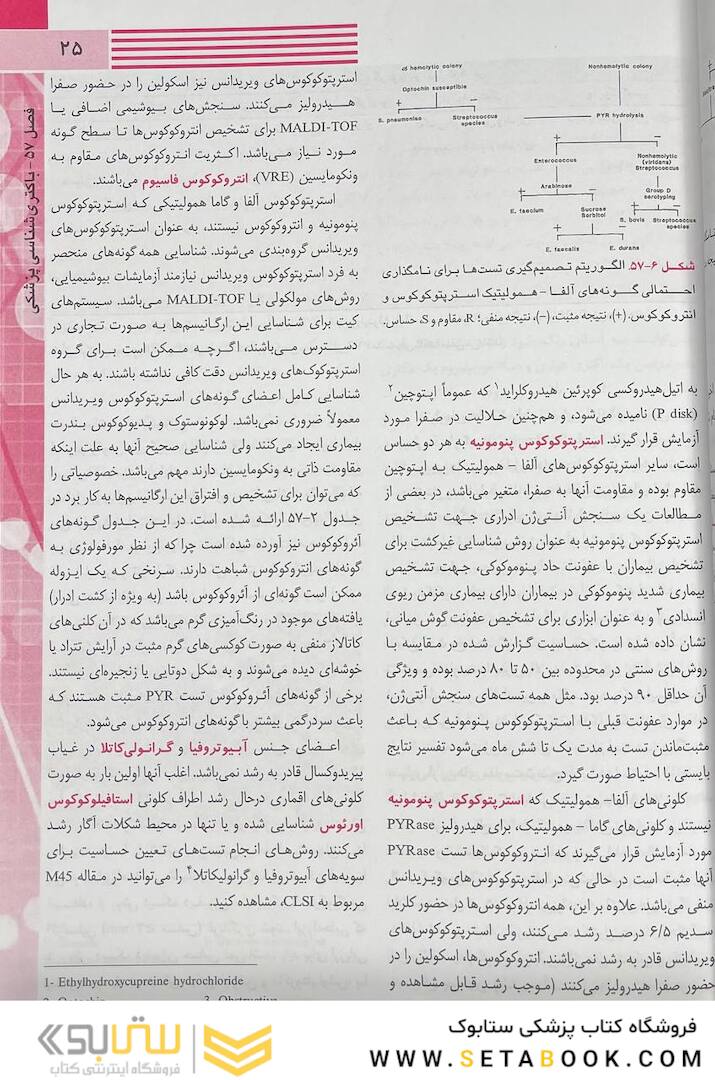 ۲۵
فصل ۵۷ - باکتری‌شناسی پزشکی
hemolytic colony
Optochin susceptible
+
–
S. pneumoniae
Streptococcus
species
Nonhemolytic colony
PYR hydrolysis
+
–
Enterococcus
Nonhemolytic
(viridans)
Streptococcus
Arabinose
+
–
Group D
serotyping
E. faecium
Sucrose
Sorbitol
+
–
S. bovis
Streptococcus
species
+
–
E. faecalis
E. durans
شکل ۶-۵۷. الگوریتم تصمیم‌گیری تست‌ها برای نامگذاری
احتمالی گونه‌های آلفا - همولیتیک استرپتوکوکوس و
انتروکوکوس. (+)، نتیجه مثبت، (-)، نتیجه منفی؛ R، مقاوم و S، حساس.
به اتیل‌هیدروکسی کوپرئین هیدروکلراید۱ که عموماً اپتوچین۲
(P disk) نامیده می‌شود، و هم‌چنین حلالیت در صفرا مورد
آزمایش قرار گیرند. استرپتوکوکوس پنومونیه به هر دو حساس
است، سایر استرپتوکوکوس‌های آلفا - همولیتیک به اپتوچین
مقاوم بوده و مقاومت آنها به صفرا، متغیر می‌باشد، در بعضی از
مطالعات یک سنجش آنتی‌ژن ادراری جهت تشخیص
استرپتوکوکوس پنومونیه به عنوان روش شناسایی غیرکشت برای
تشخیص بیماران با عفونت حاد پنوموکوکی، جهت تشخیص
بیماری شدید پنوموکوکی در بیماران دارای بیماری مزمن ریوی
انسدادی۳ و به عنوان ابزاری برای تشخیص عفونت گوش میانی،
نشان داده شده است. حساسیت گزارش شده در مقایسه با
روش‌های سنتی در محدوده بین ۵۰ تا ۸۰ درصد بوده و ویژگی
آن حداقل ۹۰ درصد بود. مثل همه تست‌های سنجش آنتی‌ژن،
در موارد عفونت قبلی با استرپتوکوکوس پنومونیه که باعث
مثبت‌ماندن تست به مدت یک تا شش ماه می‌شود تفسیر نتایج
بایستی با احتیاط صورت گیرد.
کلونی‌های آلفا- همولیتیک که استرپتوکوکوس پنومونیه
نیستند و کلونی‌های گاما - همولیتیک، برای هیدرولیز PYRase
مورد آزمایش قرار می‌گیرند که انتروکوکوس‌ها تست PYRase
آنها مثبت است در حالی که در استرپتوکوکوس‌های ویریدانس
منفی می‌باشد. علاوه بر این، همه انتروکوکوس‌ها در حضور کلرید
سدیم ۶/۵ درصد رشد می‌کنند، ولی استرپتوکوکوس‌های
ویریدانس قادر به رشد نمی‌باشند. انتروکوکوس‌ها، اسکولین را در
حضور صفرا هیدرولیز می‌کنند (موجب رشد قابل مشاهده و
استرپتوکوکوس‌های ویریدانس نیز اسکولین را در حضور صفرا
هیدرولیز می‌کنند. سنجش‌های بیوشیمی اضافی یا
MALDI-TOF برای تشخیص انتروکوکوس‌ها تا سطح گونه
مورد نیاز می‌باشد. اکثریت انتروکوکوس‌های مقاوم به
ونکومایسین (VRE)، انتروکوکوس فاسیوم می‌باشند.
استرپتوکوکوس آلفا و گاما همولیتیکی که استرپتوکوکوس
پنومونیه و انتروکوکوس نیستند، به عنوان استرپتوکوکوس‌های
ویریدانس گروه‌بندی می‌شوند. شناسایی همه گونه‌های منحصر
به فرد استرپتوکوکوس ویریدانس نیازمند آزمایشات بیوشیمیایی،
روش‌های مولکولی یا MALDI-TOF می‌باشد. سیستم‌های
کیت برای شناسایی این ارگانیسم‌ها به صورت تجاری در
دسترس می‌باشند، اگرچه ممکن است برای گروه
استرپتوکوک‌های ویریدانس دقت کافی نداشته باشند. به هر حال
شناسایی کامل اعضای گونه‌های استرپتوکوکوس ویریدانس
معمولاً ضروری نمی‌باشد. لوکونوستوک و پدیوکوکوس بندرت
بیماری ایجاد می‌کنند ولی شناسایی صحیح آنها به علت اینکه
مقاومت ذاتی به ونکومایسین دارند مهم می‌باشد. خصوصیاتی را
که می‌توان برای تشخیص و افتراق این ارگانیسم‌ها به کار برد در
جدول ۲-۵۷ ارائه شده است. در این جدول گونه‌های
آئروکوکوس نیز آورده شده است چرا که از نظر مورفولوژی به
گونه‌های انتروکوکوس شباهت دارند. سرنخی که یک ایزوله
ممکن است گونه‌ای از آئروکوکوس باشد (به ویژه از کشت ادرار)
یافته‌های موجود در رنگ‌آمیزی گرم می‌باشد که در آن کلنی‌های
کاتالاز منفی به صورت کوکسی‌های گرم مثبت در آرایش تتراد یا
خوشه‌ای دیده می‌شوند و به شکل دوتایی یا زنجیره‌ای نیستند.
برخی از گونه‌های آئروکوکوس تست PYR مثبت هستند که
باعث سردرگمی بیشتر با گونه‌های انتروکوکوس می‌شود.
اعضای جنس آبیوتروفیا و گرانولی‌کاتلا در غیاب
پیریدوکسال قادر به رشد نمی‌باشد. اغلب آنها اولین بار به صورت
کلونی‌های اقماری درحال رشد اطراف کلونی استافیلوکوکوس
اورئوس شناسایی شده و یا تنها در محیط شکلات آگار رشد
می‌کنند. روش‌های انجام تست‌های تعیین حساسیت برای
سویه‌های آبیوتروفیا و گرانولیکاتلا۴ را می‌توانید در مقاله M45
مربوط به CLSI، مشاهده کنید.
1- Ethylhydroxycupreine hydrochloride
فروشگاه کتاب پزشکی ستابوک
WWW.SETABOOK.COM
ستابوک
فروشگاه اینترنتی کتاب